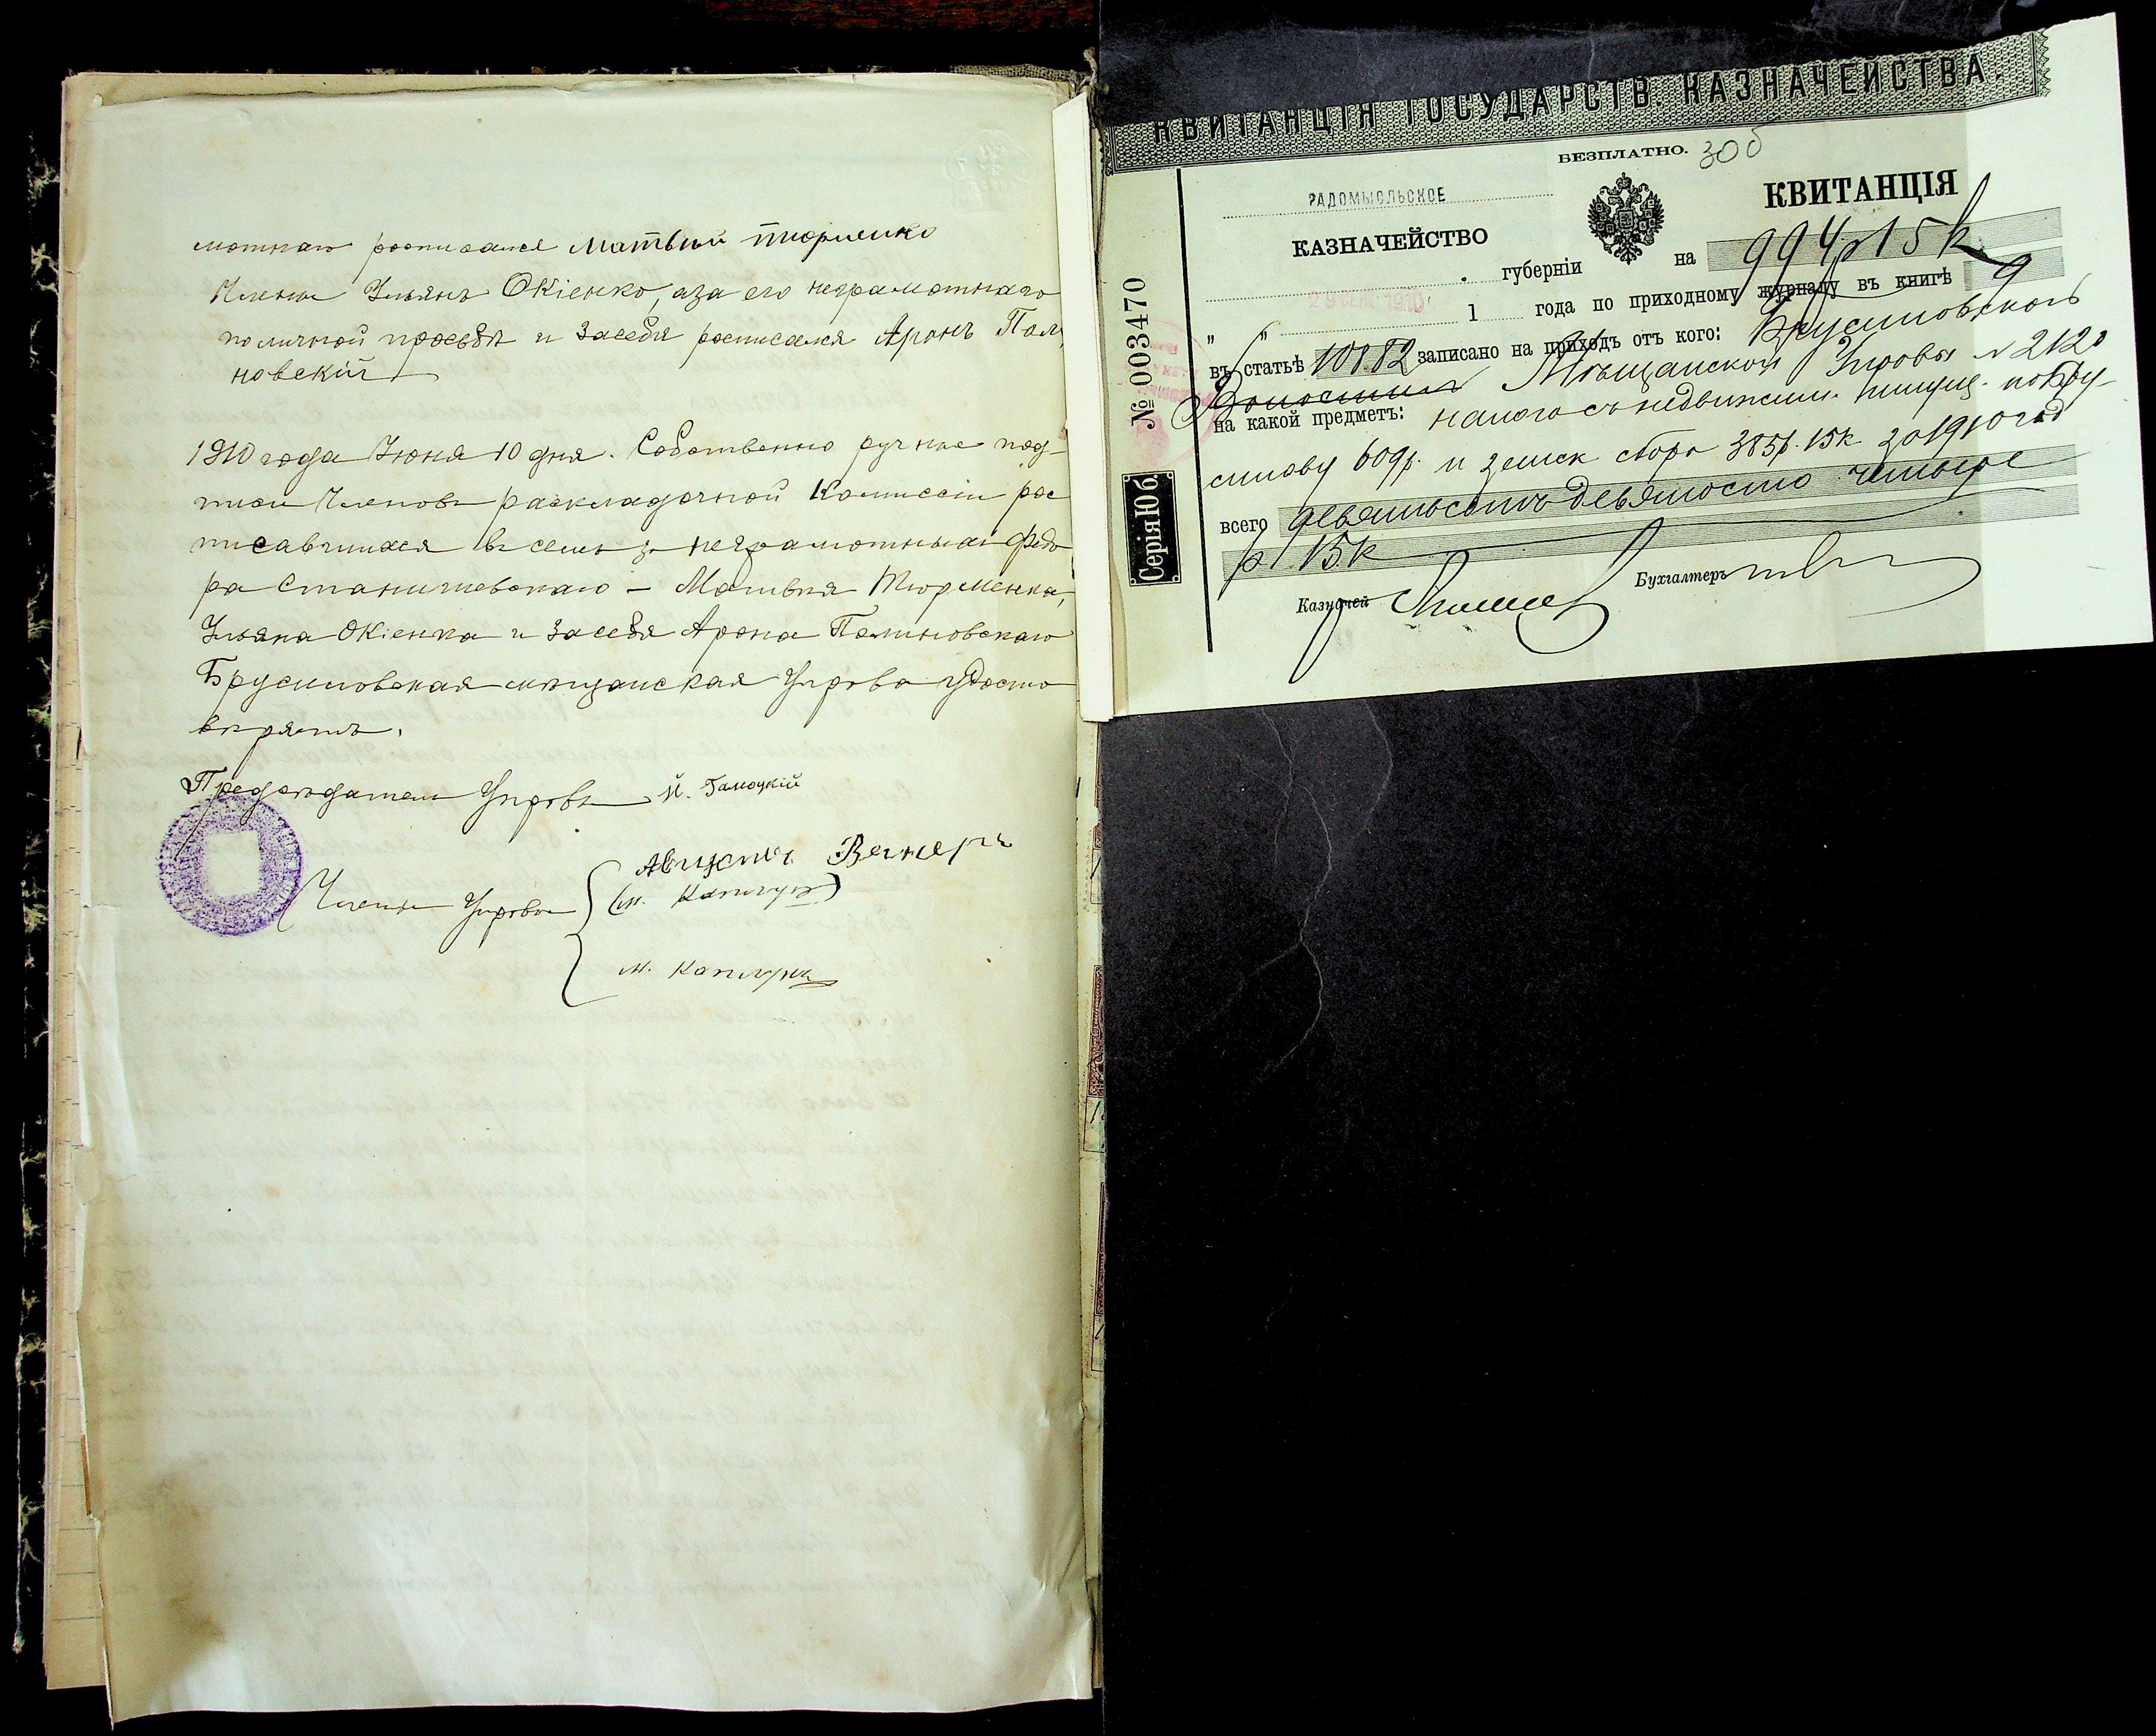 мотнаго росписался Матвѣй Тюрменко
Члены Ульянъ Окіенко, а за его неграмотнаго
по личной просьбѣ и за себя росписался Аронъ Пали
новскій
1910 года Іюня 10 дня. Собственно ручные под-
писи Членовъ раскладочной Коммиссіи рос
писавшихся въ семъ за неграмотныхъ Федо
ра Станишевскаго – Матвѣя Тюрменка,
Ульяна Окіенка и за себя Арона Палиновскаго
Брусиловская мѣщанская Управа удосто
вѣряетъ.
Предсѣдатель Управы
Члены Управы
КВИТАНЦІЯ ГОСУДАРСТВ. КАЗНАЧЕЙСТВА.
БЕЗПЛАТНО. 306
РАДОМЫСЛЬСКОЕ
КВИТАНЦІЯ
КАЗНАЧЕЙСТВО
губерніи на 994 р 15 к
" " 29 СЕН. 1910 1 года по приходному журналу въ книгѣ 9
въ статьѣ 10882 записано на приходъ отъ кого: Брусиловской
Мѣщанской Управы № 2120
на какой предметъ: налога съ недвижим. имущ. по Бру-
силову 609 р. и земск сбора 385 р. 15 к за 1910 год
всего девятьсотъ девяносто четыре
р 15 к
Казначей Бухгалтеръ
№ 003470
Серія Ю б.